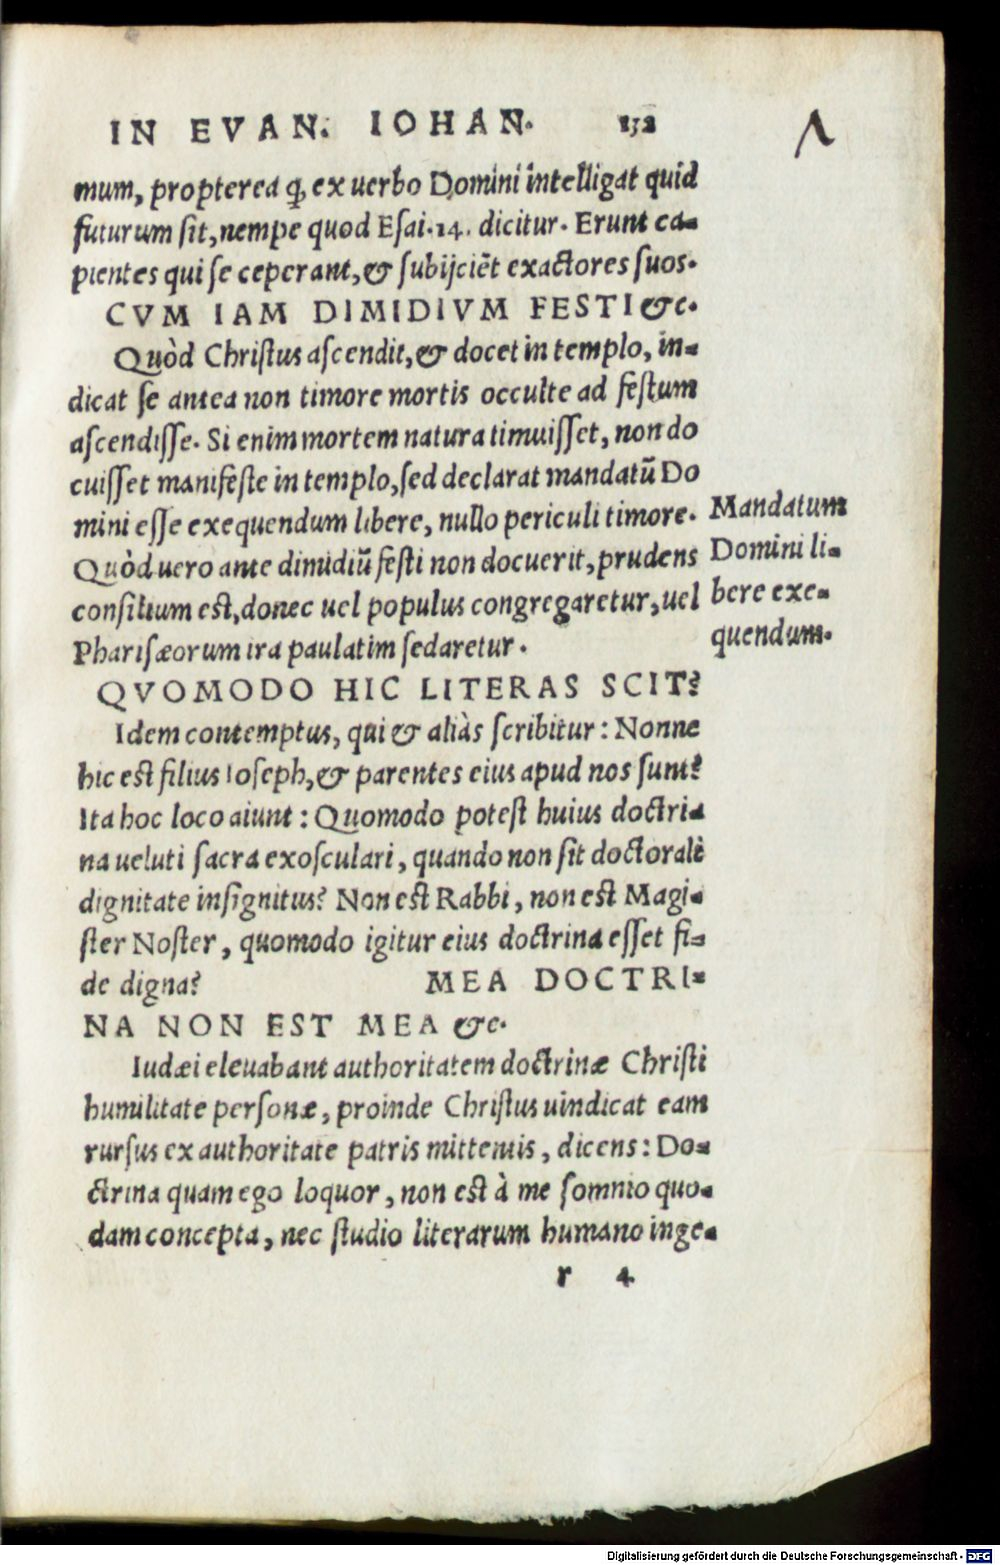 IN EVAN. IOHAN. 132
mum, propterea ꝙ ex uerbo Domini intelligat quid
futurum sit, nempe quod Esai. 14. dicitur. Erunt ca-
pientes qui se ceperant, & subijciēt exactores suos.
CVM IAM DIMIDIVM FESTI &c.
Quòd Christus ascendit, & docet in templo, in-
dicat se antea non timore mortis occulte ad festum
ascendisse. Si enim mortem natura timuisset, non do
cuisset manifeste in templo, sed declarat mandatū Do
mini esse exequendum libere, nullo periculi timore.
Quòd uero ante dimidiū festi non docuerit, prudens
consilium est, donec uel populus congregaretur, uel
Pharisæorum ira paulatim sedaretur.
Mandatum
Domini li-
bere exe-
quendum.
QVOMODO HIC LITERAS SCIT?
Idem contemptus, qui & aliàs scribitur: Nonne
hic est filius Ioseph, & parentes eius apud nos sunt?
Ita hoc loco aiunt: Quomodo potest huius doctri-
na ueluti sacra exosculari, quando non sit doctorali
dignitate insignitus? Non est Rabbi, non est Magi-
ster Noster, quomodo igitur eius doctrina esset fi-
de digna? MEA DOCTRI-
NA NON EST MEA &c.
Iudæi eleuabant authoritatem doctrinæ Christi
humilitate personæ, proinde Christus uindicat eam
rursus ex authoritate patris mittentis, dicens: Do-
ctrina quam ego loquor, non est à me somnio quo-
dam concepta, nec studio literarum humano inge-
r 4
Digitalisierung gefördert durch die Deutsche Forschungsgemeinschaft - DFG